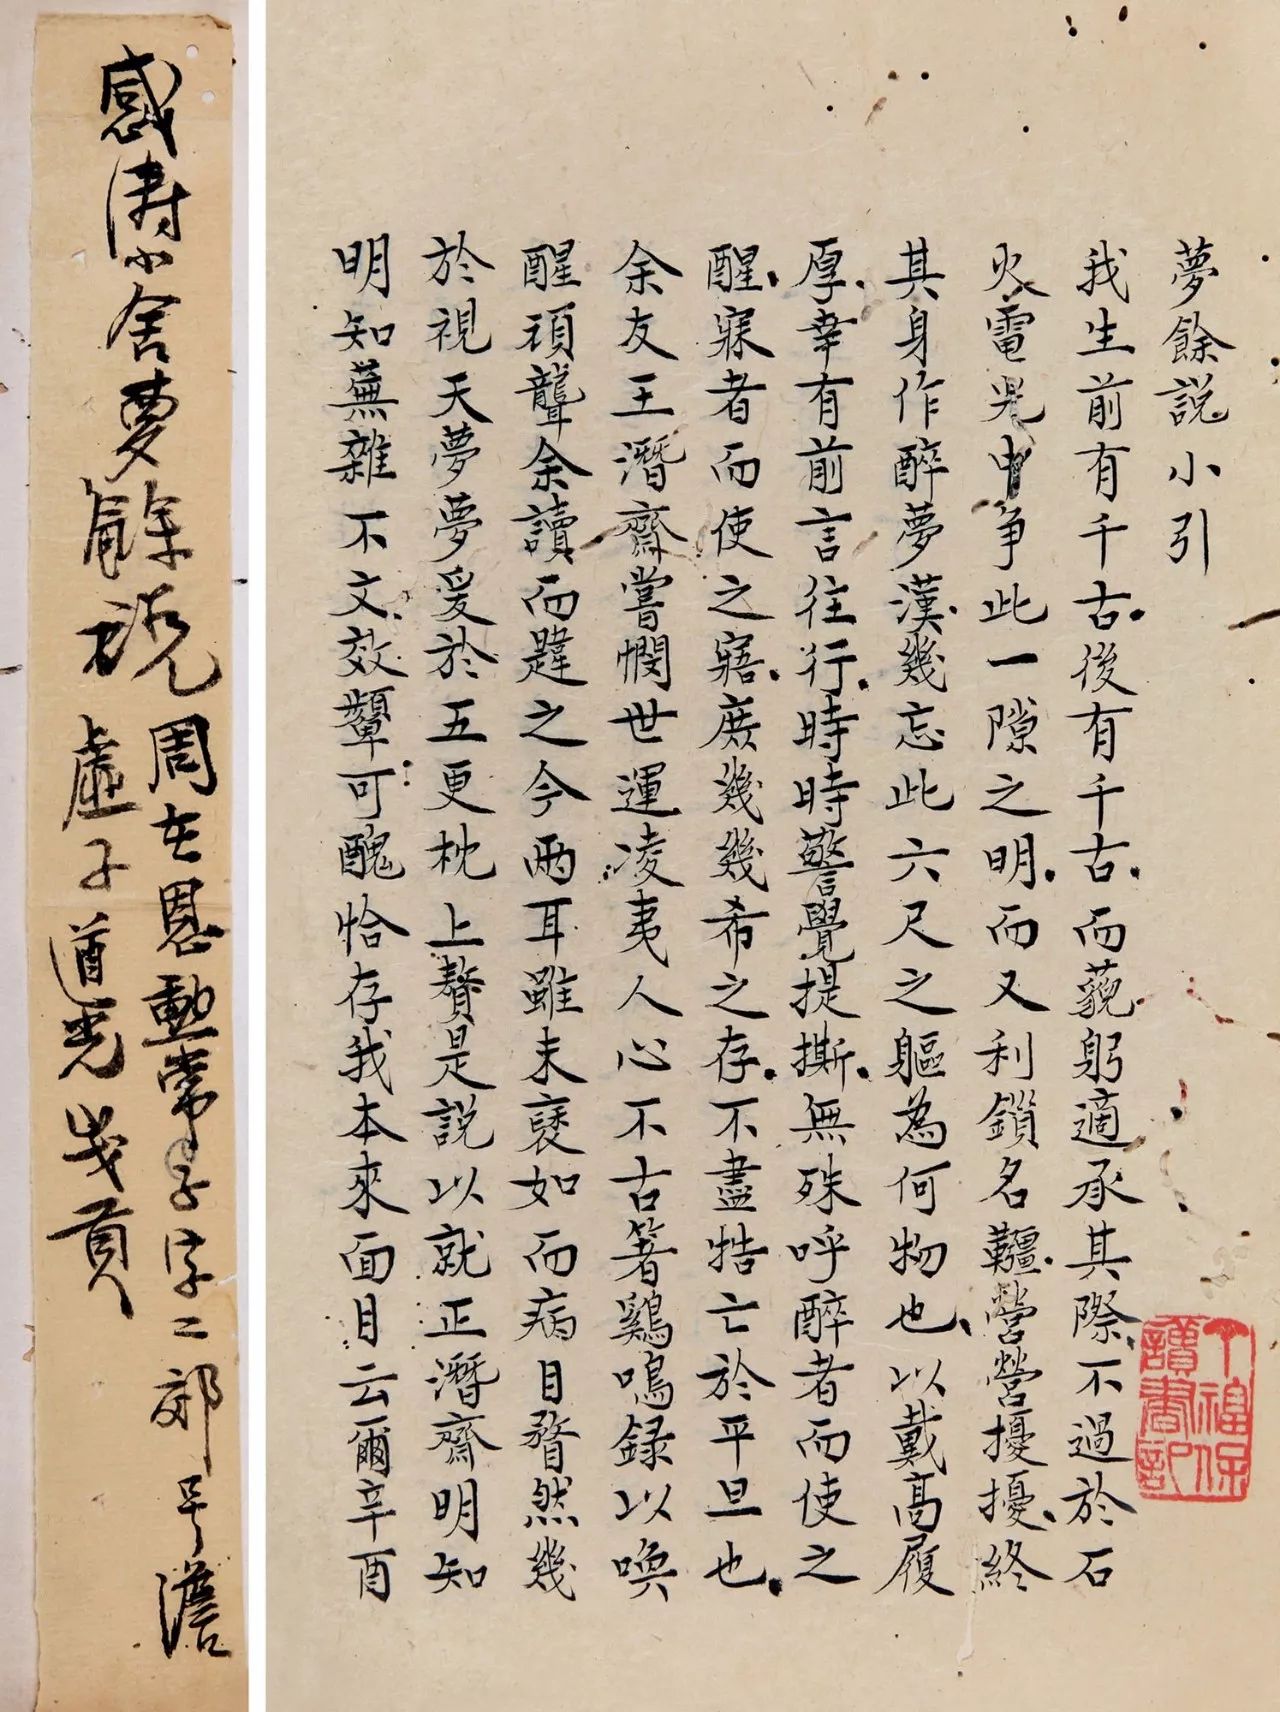 夢餘說小引
我生前有千古後有千古而藐躬適承其際不過於石
火電光中爭此一隙之明而又利鎖名韁營營擾擾終
其身作醉夢漢幾忘此六尺之軀為何物也以戴高履
厚幸有前言往行時時警覺提撕無殊呼醉者而使之
醒寐者而使之寤庶幾幾希之存不盡牿亡於平旦也
余友王潛齋嘗憫世運凌夷人心不古著鷄鳴録以喚
醒頑聾余讀而韙之今兩耳雖未褎如而病目瞀然幾
於視天夢夢爰於五更枕上贅是説以就正潛齋明知
明知蕪雜不文效顰可醜恰存我本來面目云爾辛酉
丁福保
讀書記
感濤小舍夢餘説 周在恩勳常子字二郊號澹
虛子道光歲貢